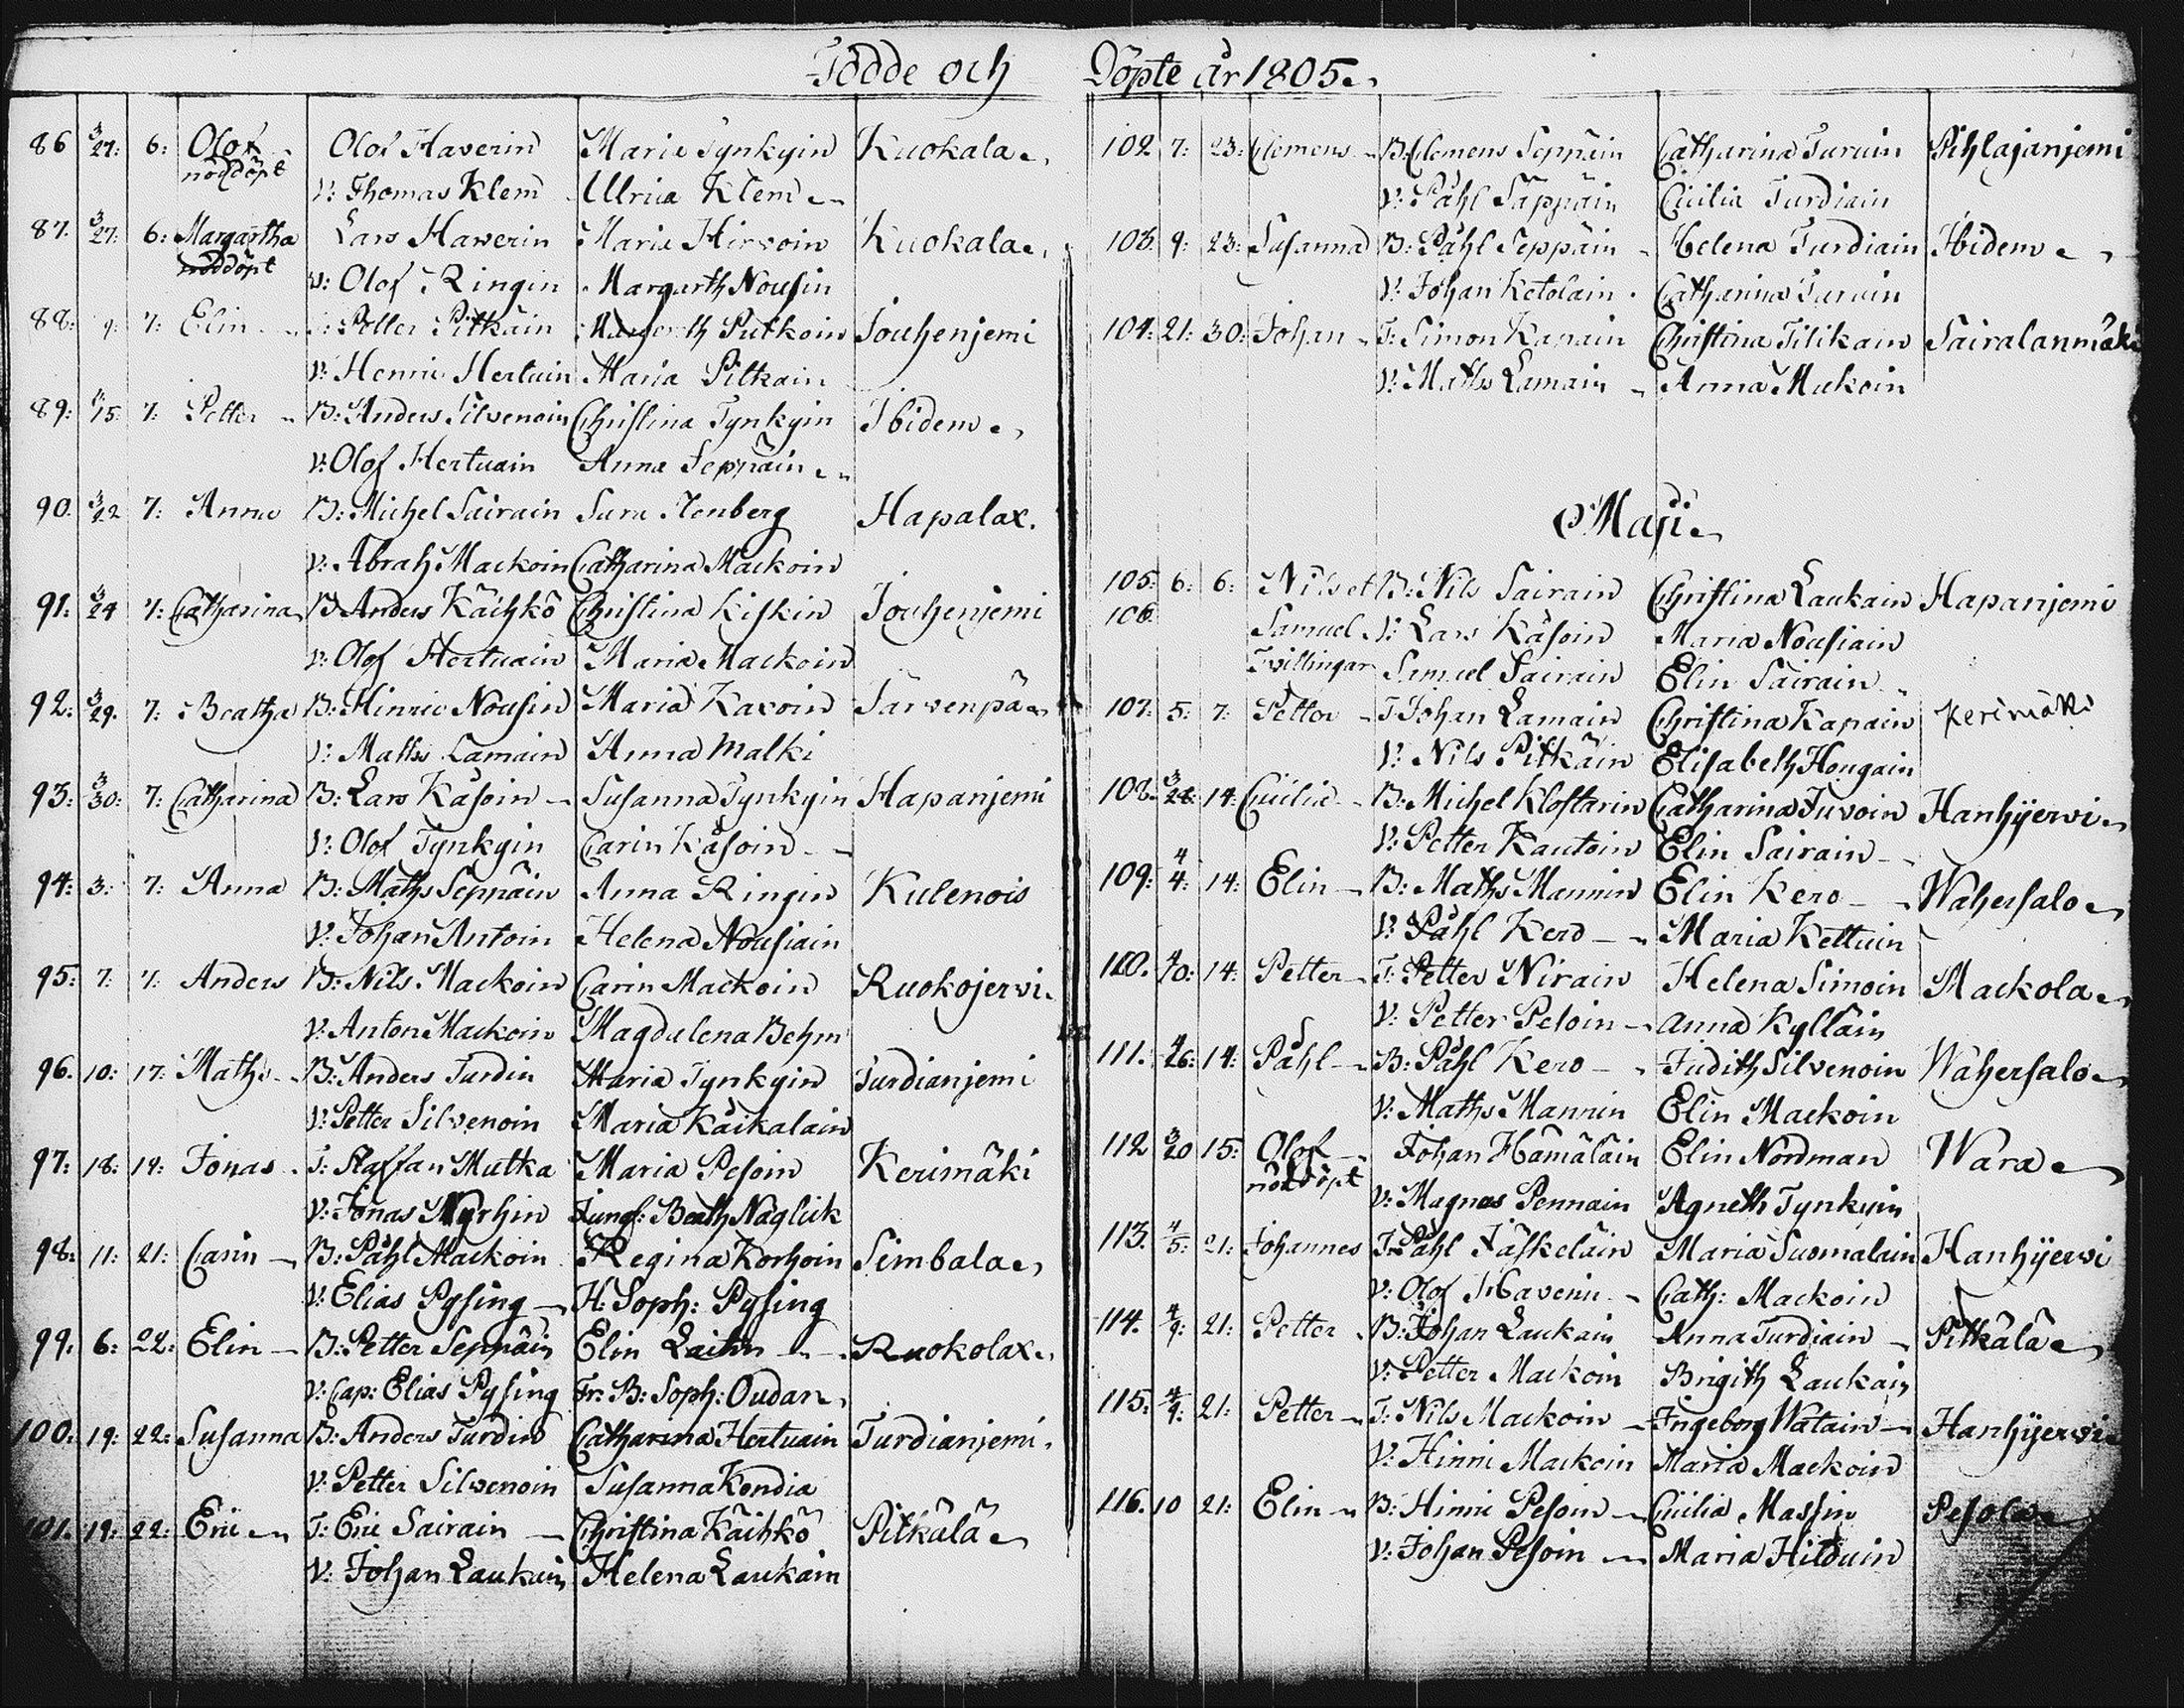 Födde och Döpte år 1805.
86 3/27: 6: Olof Olof Haverin Maria Tynkyin Kuokala
nöddöpt V: Thomas Klem Ulrica Klem
87. 3/27: 6: Margartha Lars Haverin Maria Hirvoin Kuokala
nöddöpt V: Olof Ringin Margarth Nousin
88: 7: Elin Petter Pitkäin Margarth Putkoin Jouhenjemi
V: Henric Hertuin Maria Pitkain
89: 15: 7: Petter B: Anders Silvenoin Christina Tynkyin Ibidem
V: Olof Hertuain Anna Seppäin
90. 3/22 7: Anna B: Michel Sairain Sara Stenberg Hapalax.
V: Abrah Mackoin Catharina Mackoin
91: 3/24 7: Catharina B: Anders Käihkö Christina Kiskin Jouhenjemi
V: Olof Hertuain Maria Mackoin
92: 3/29. 7: Beatha B: Hinric Nousin Maria Kavoin Järvenpä
V: Maths Lamain Anna Malki
93: 3/30: 7: Catharina B: Lars Käsoin Susanna Tynkyin Hapanjemi
V: Olof Tynkyin Carin Käsoin
94: 3: 7: Anna B: Maths Seppäin Anna Ringin Kulenois
V: Johan Antoin Helena Nousiain
95: 7: 7: Anders B: Nils Mackoin Carin Mackoin Ruokojervi
V: Anton Mackoin Magdalena Behm
96. 10: 17: Maths B: Anders Turdin Maria Tynkyin Turdianjemi
V: Petter Silvenoin Maria Käikalain
97: 18: 19: Jonas T: Staffan Mutka Maria Pesoin Kerimäki
V: Jonas Nyrhin Jungf: Beath Näglick
98: 11: 21: Carin B: Påhl Mackoin Regina Korhoin Simbala
V: Elias Pysing H: Soph: Pysing
99: 6: 22: Elin B: Petter Seppäin Elin Laitin Ruokolax
V: Cap: Elias Pysing Fr: B: Soph: Oudan
100: 19: 22: Susanna B: Anders Turdin Catharina Hertuain Turdianjemi
V: Petter Silvenoin Susanna Kondia
101. 19: 22: Eric T: Eric Sairain Christina Käihkö Pitkälä
V: Johan Laukain Helena Laukain
102 7: 23: Clemens B: Clemens Seppäin Catharina Turuin Pihlajanjemi
V: Påhl Säppäin Cicilia Turdiain
103. 9: 23: Susanna B: Påhl Seppäin Helena Turdiain Ibidem
V: Johan Ketolain Catharina Turuin
104: 21: 30: Johan T: Simon Kapain Christina Tilikain Sairalanmäki
V: Maths Lamain Anna Mackoin
Maji
105: 6: 6: Nils et B: Nils Sairain Christina Laukain Hapanjemi
106. Samuel V: Lars Käsoin Maria Nousiain
Tvillingar Samuel Sairain Elin Sairain
107. 5: 7: Petter T Johan Lamain Christina Kapain Kerimäki
V: Nils Pitkäin Elisabeth Hongain
108. 3/28: 14: Cicilia B: Michel Klostarin Catharina Juvoin Hanhijervi
V: Petter Kautoin Elin Sairain
109: 4/4: 14: Elin B: Maths Mannin Elin Kero Wahersalo
V: Påhl Kero Maria Kettuin
110. 4/10: 14: Petter T: Petter Nirain Helena Simoin Mackola
V: Petter Pesoin Anna Kylläin
111. 4/26: 14: Påhl B: Påhl Kero Judith Silvenoin Wahersalo
V: Maths Mannin Elin Mackoin
112 3/20 15: Olof Johan Hämäläin Elin Nordman Wara
nöddöpt V: Magnus Pennain Agneth Tynkyin
113. 4/5: 21: Johannes T: Påhl Jäskeläin Maria Suomalain Hanhijervi
V: Olof Haverin Cath: Mackoin
114. 4/9: 21: Petter B: Johan Laukain Anna Turdiain Pitkälä
V: Petter Mackoin Brigith Laukain
115: 4/9: 21: Petter T: Nils Mackoin Ingeborg Watain Hanhijervi
V: Hinric Mackoin Maria Mackoin
116. 10 21: Elin B: Hinric Pesoin Cicilia Massin Pesola
V: Johan Pesoin Maria Hilduin